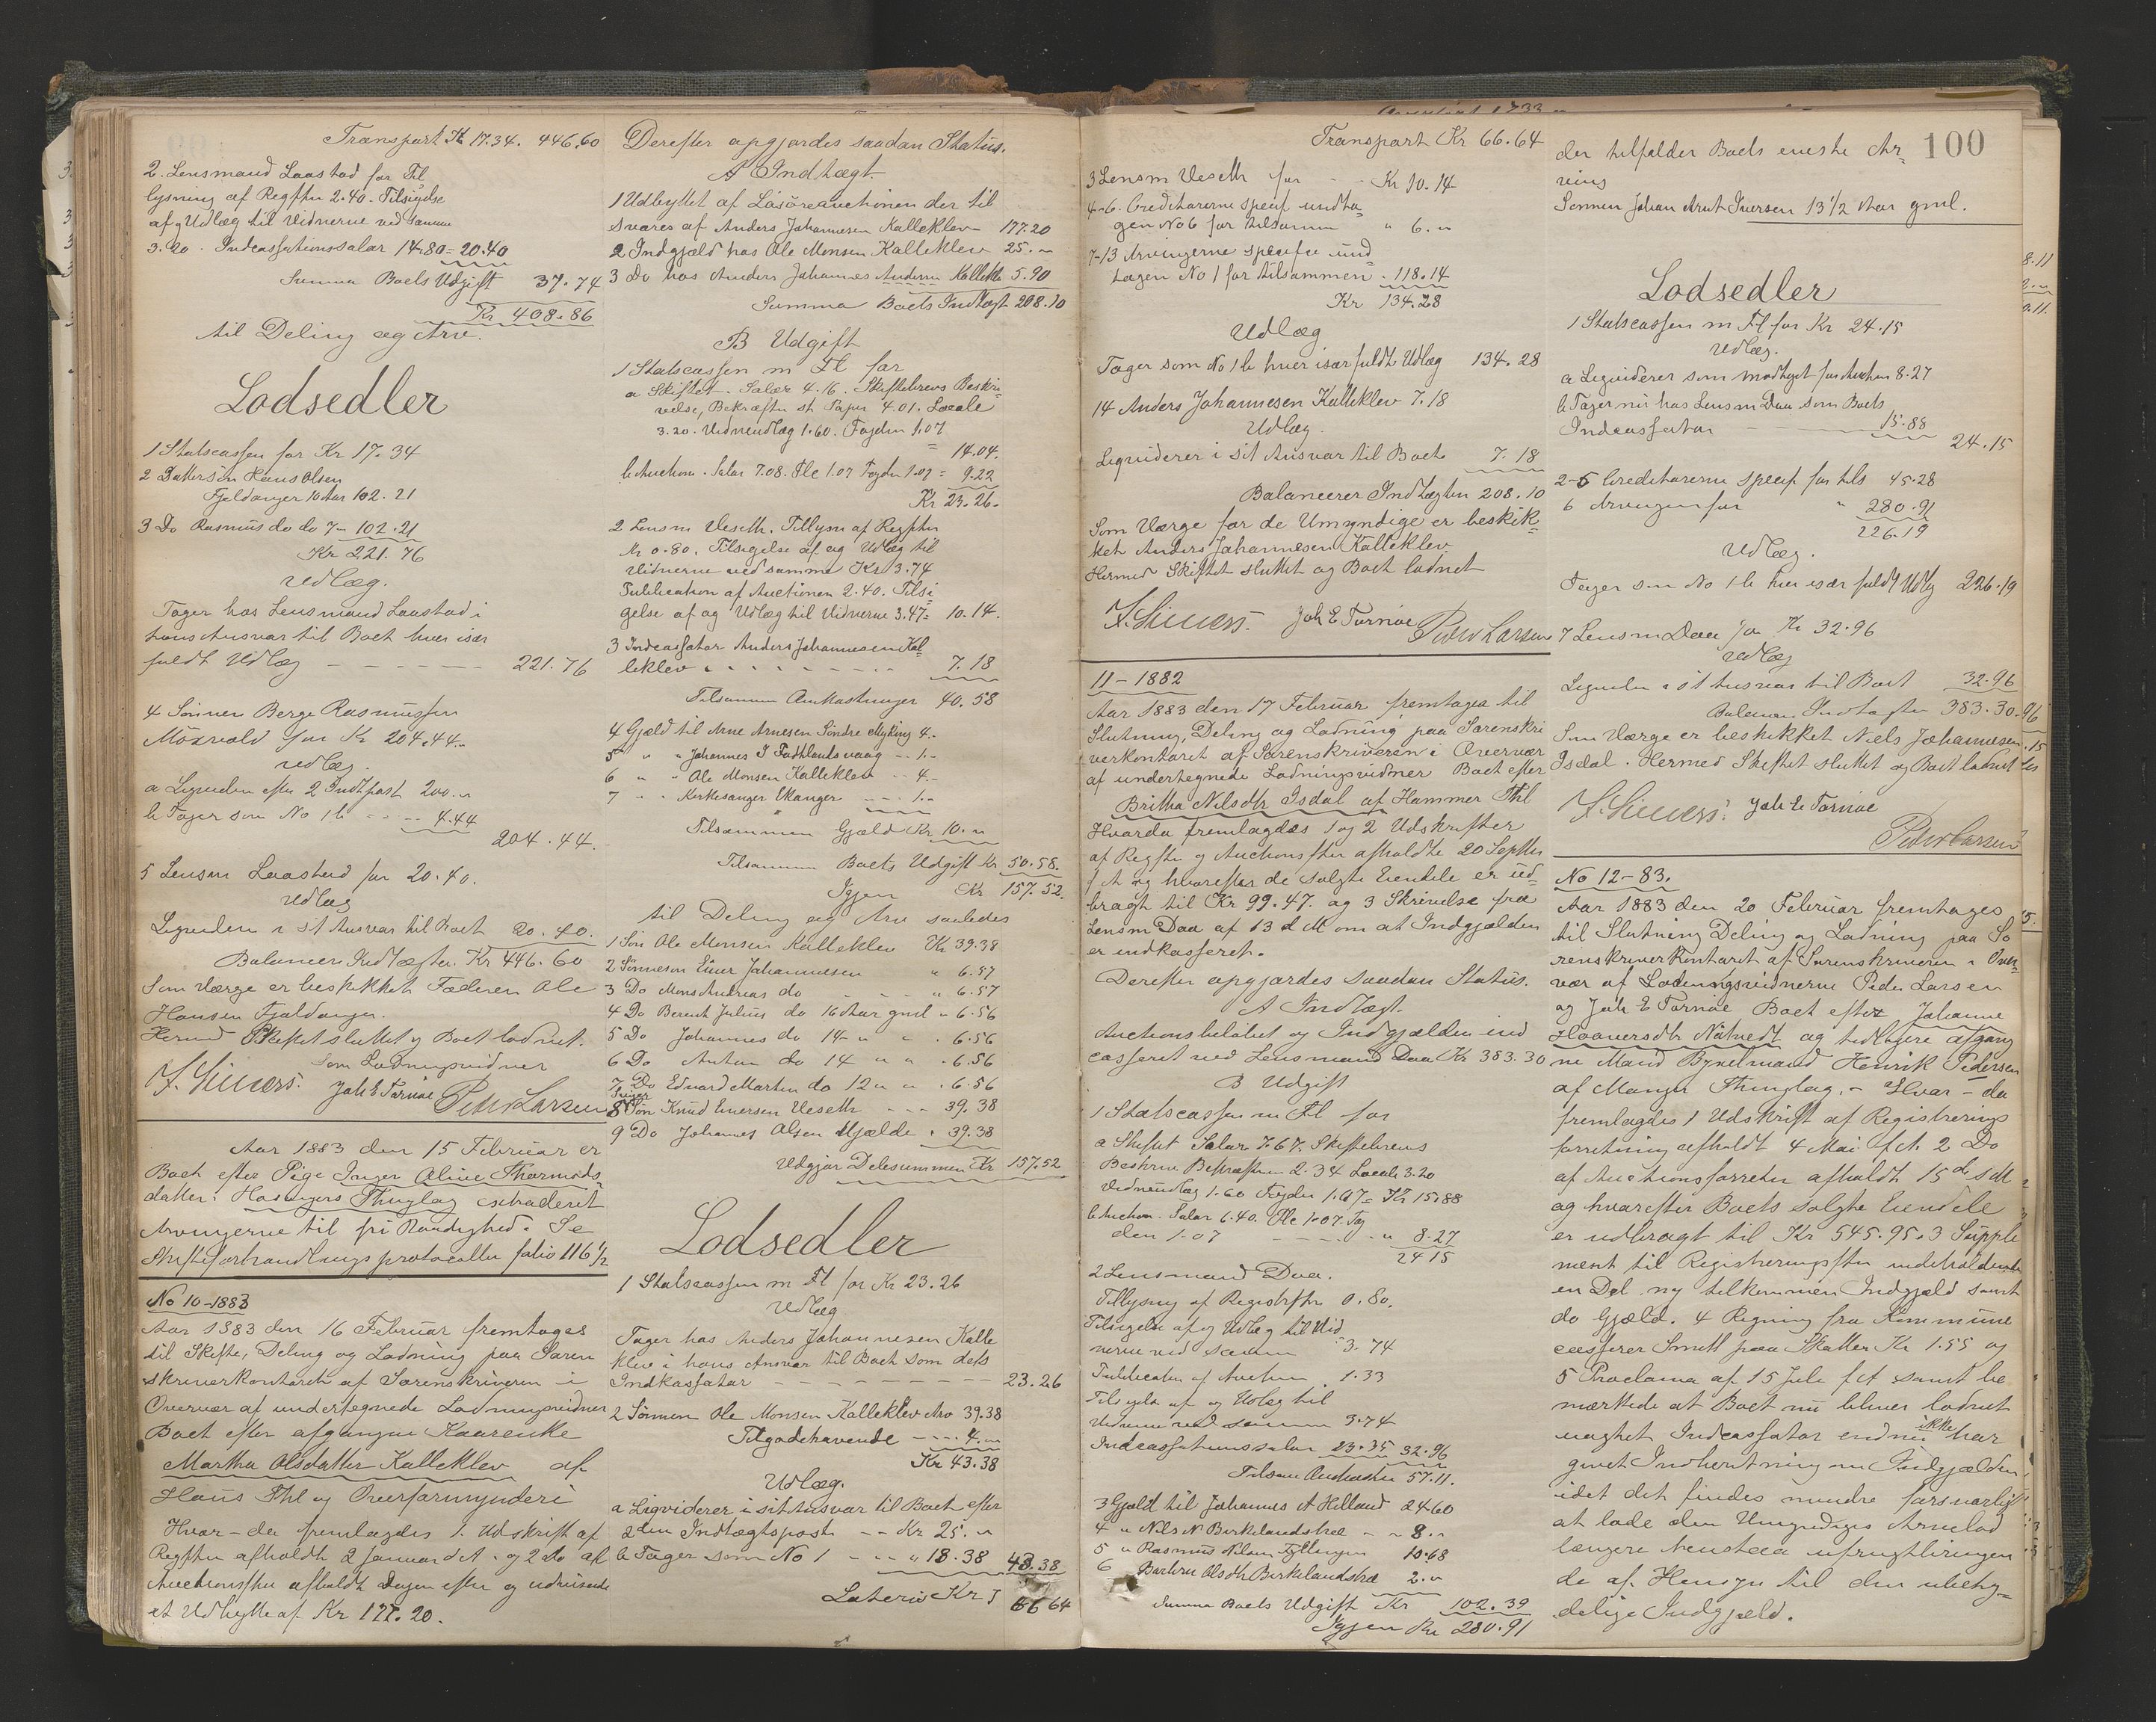 Transport Kr 17.34. 446.60
2. Lensmand Laastad for Til
lysning af Regfttn 2.40. Tilsigelse
af og Udlæg til Vidnerne ved samme
3.20. Indcassationssalær 14.80 = 20.40
Summa Boets Udgift 37.74
Kr 408.86
til Deling og Arv.
Lodsedler
1 Statscassen for Kr 17.34
2 Dattersøn Hans Olsen
Fjeldanger 10 Aar 102.21
3 Do Rasmus do do 7 - 102.21
Kr 221.76
Udlæg.
Tager hos Lensmand Laastad i
hans Ansvar til Boet hver især
fuldt Udlæg - - - - - 221.76
4 Sønnen Berge Rasmussen
for Kr 204.44.
Udlæg.
a Ligviderer efter 2 Indtpost 200.„
b Tager som No 1 b - - - 4.44
204.44.
5 Lensm Laastad for 20.40.
Udlæg
Ligviderer i sit Ansvar til Boet 20.40.
Balancerer Indtægten. Kr 446.60
Som Værge er beskikket Faderen Ole
Hansen Fjeldanger.
Hermed Skiftet sluttet og Boet lodnet.
Som Lodningsvidner
Joh E Tornøe Peder Larsen
Aar 1883 den 15 Februar er
Boet efter Pige Inger Oline Thormods
datter i Hosangers Thinglag extraderet
Arvingerne til fri Raadighed. Se
Skifteforhandlingsprotocollen folio 116 1/2
No 10-1883
Aar 1883 den 16 Februar fremtoges
til Skifte, Deling og Lodning paa Soren
skriverkontoret af Sorenskriveren i
Overvær af undertegnede Lodningsvidner
Boet efter afgangne Kaarenke
Martha Olsdatter Kalleklev af
Haus Thl og Overformynderi
Hvor-da fremlagdes 1. Udskrift af
Regfttn afholdt 2 Januar d A. og 2 Do af
Auctionsftn afholdt Dagen efter og udvisende
et Udbytte af Kr 177.20.
Derefter opgjordes saadan Status.
A Indtægt
1 Udbyttet af Løsøreauctionen der til
svares af Anders Johannesen Kalleklev 177.20
2 Indgjæld hos Ole Monsen Kalleklev 25.„
3 Do hos Anders Johannes 5.90
Summa Boets Indtægt 208.10
B Udgift
1 Statscassen m Fl for
a Skiftet. Salær 4.16. Skiftebrevs Beskri
velse, Bekræftn st Papir 4.01. Locale
3.20. Vidneudlæg 1.60. Fogden 1.07
= 14.04.
b Auction. Salær 7.08. Fle 1.07 Fogden 1.07 = 9.22
Kr 23.26.
2 Lensm Veseth. Tillysn af Regfttn
Kr 0.80. Tilsigelse af og Udlæg til
Vidnerne ved samme Kr 3.74
Publication af Auctionen 2.40. Tilsi
gelse af og Udlæg til Vidnerne 3.47 = 10.14.
3 Indcassator Anders Johannesen Kal
leklev - - - - - - - 7.18
Tilsammen Omkostninger 40.58
4 Gjæld til Arne Arnesen Søndre Myking 4.
5 „ „ Johannes J -- 1.-
6 „ „ Ole Monsen Kalleklev -- 4.-
7 „ „ Kirkesanger Manger --- 1.-
Tilsammen Gjæld Kr 10.„
Tilsammen Boets Udgift Kr. 50.58.
Igjen Kr 157.52.
til Deling og Arv saaledes
1 Søn Ole Monsen Kalleklev Kr 39.38
2 Sønnesøn Einer Johannesen „ 6.57
3 Do Mons Andreas do - - - „ 6.57
4 Do Berent Julius do 16 Aar gml „ 6.56
5 Do Johannes do 14 „ „ . 6.56
6 Do Anton do 14 „ „ . 6.56
7 Do Edvard Martin do 12 „ „ . 6.56
8 Søn Knud Iversen Veseth --- 39.38
9 Do Johannes Olsen Mjelde . 39.38
Udgjør Delesummen Kr 157.52
Lodsedler
1 Statscassen m Fl for Kr 23.26
Udlæg
Tager hos Anders Johannesen Kalle
klev i hans Ansvar til Boet som dets
Indkassator - - - - - - - - 23.26
2 Sønnen Ole Monsen Kalleklev Arv 39.38
Tilgodehavende --- 4.„
Kr 43.38
Udlæg.
a Ligviderer i sit Ansvar til Boet efter
2den Indtægtspost -- Kr 25.„
b Tager som No 1 --- „ 18.38 43.38
Lateris Kr 66 64
Transport Kr 66.64
3 Lensm Veseth for - - Kr 10.14
4-6. Creditorerne specif undta
gen No 6 for tilsammen „ 6.„
7-13 Arvingerne specifi und
tagen No 1 for tilsammen . 118.14
Kr 134.28
Udlæg
Tager som No 1 b hver især fuldt Udlæg 134.28
14 Anders Johannesen Kalleklev 7.18
Udlæg.
Ligviderer i sit Ansvar til Boet 7.18
Balancerer Indtægten 208.10
Som Værge for de Umyndige er beskik
ket Anders Johannesen Kalleklev.
Hermed Skiftet sluttet og Boet lodnet
Joh E Tornøe Peder Larsen
11-1882
Aar 1883 den 17 Februar fremtoges til
Slutning, Deling og Lodning paa Sorenskri
verkontoret af Sorenskriveren i Overvær
af undertegnede Lodningsvidner Boet efter
Britha Nilsdtr Isdal af Hammer Thl
Hvorda fremlagdes 1 og 2 Udskrifter
af Regftn og Auctionsftn afholdte 20 Septbr
f A og hvorefter de solgte Eiendele er ud
bragt til Kr 99.47. og 3 Skrivelse fra
Lensm Daa af 13 d M om at Indgjælden
er indkasseret.
Derefter opgjordes saadan Status.
A Indtægt.
Auctionsbeløbet og Indgjælden ind
casseret ved Lensmand Daa Kr 383.30
B Udgift
1 Statscassen m Fl for
a Skiftet Salær 7.67. Skiftebrevs
Beskriv Bekræftn 2.34 Locale 3.20
Vidneudlæg 1.60 Fogden 1.07 = Kr 15.88
b Auction. Salær 6.40. Fle 1.07. Fog
den 1.07 - - - - „ 8.27
24 15
2 Lensmand Daa.
Tillysning af Registrftn 0.80.
Tilsigelse af og Udlæg til Vid
nerne ved samme 3.74
Publication af Auction . 1.33
Tilsigelse af og Udlæg til
Vidnerne ved samme 3.74
Indcassationssalær 23.35 32.96
Tilsam Omkostn 57.11.
3 Gjæld til Johannes A Helland 24 60
4 „ Nils N Birkelandshæ - - 8.„
5 „ Rasmus Nilsen 10.68
6 Barbru Olsdtr Birkelandshæ 2.„
Summa Boets Udgift Kr 102.39
Igjen Kr 280.91
100
der tilfalder Boets eneste Ar
ving
Sønnen Johan Arnt Iversen 13 1/2 Aar gml.
Lodsedler
1 Statscassen m Fl for Kr 24.15
Udlæg.
a Ligviderer som modtaget for Auction 8.27
b Tager nu hos Lensm Daa som Boets
Indcassator - - - - 15.88
24.15
2-5 Creditorerne specif for tils 45.28
6 Arvingen for „ 280.91
226.19
Udlæg.
Tager som No 1 b hver især fuldt Udlæg 226.19
7 Lensm Daa for Kr 32.96
Udlæg
Ligvider i sit Ansvar til Boet 32.96
Balancerer Indtægten 383.30
Som Værge er beskikket Niels Johannesen
Isdal. Hermed Skiftet sluttet og Boet lodnet
Joh E Tornøe
Peder Larsen
No 12-83.
Aar 1883 den 20 Februar fremtoges
til Slutning Deling og Lodning paa So
renskriverkontoret af Sorenskriveren i Over
vær af Lodningsvidnerne Peder Larsen
og Joh E Tornøe Boet efter Johanne
Haaversdtr Nåtvedt og tidligere afgang
ne Mand Bygselmand Henrik Pedersen
af Manger Thinglag. - Hvor-da
fremlagdes 1 Udskrift af Registrerings
forretning afholdt 4 Mai f A. 2 Do
af Auctionsforretn afholdt 15de s M
og hvorefter Boets solgte Eiendele
er udbragt til Kr 545.95. 3 Supple
ment til Registreringsftn indeholdende
en Del ny tilkommen Indgjæld samt
do Gjæld. 4 Regning fra Kommune
casserer Smitt paa Skatter Kr 1.55 og
5 Proclama af 15 Juli f A samt be
mærkede at Boet nu bliver lodnet
uagtet Indcassator endnu ikke har
givet Indberetning om Indgjælden
idet det findes mindre forsvarligt
at lade den Umyndiges Arvelod
længere henstaa ufrugtbringen
de af Hensyn til den ubety
delige Indgjæld.